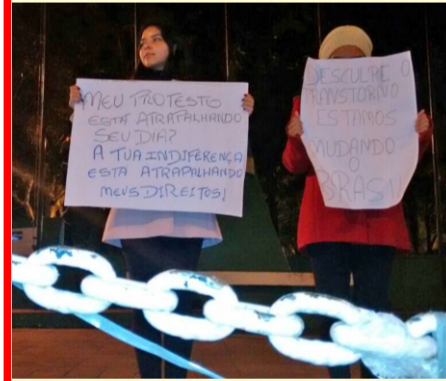 MEU PROTESTO
ESTÁ ATRAPALHANDO
SEU DIA?
A TUA INDIFERENÇA
ESTA ATRAPALHANDO
MEUS DIREITOS!
DESCULPE O
TRANSTORNO
ESTAMOS
MUDANDO
O
BRASIL